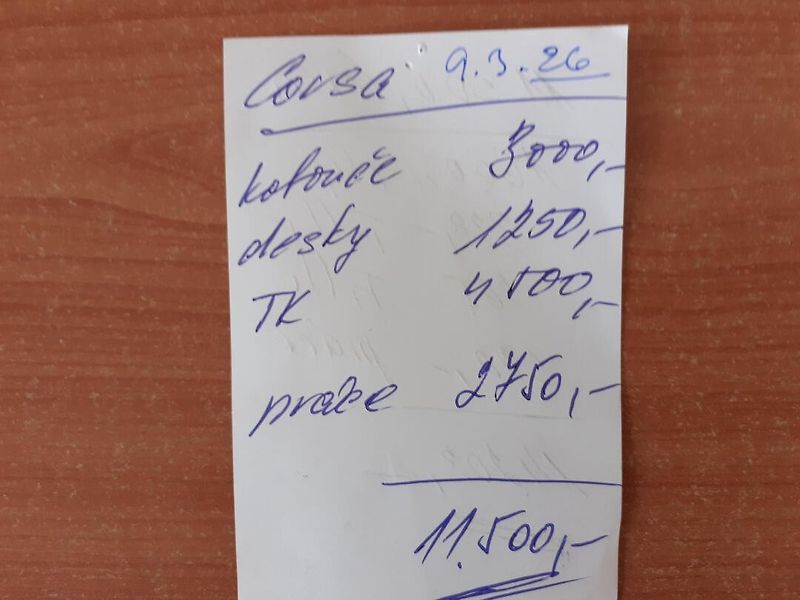 Corsa 9.3.26
kotouče 3000,-
desky 1250,-
TK 4500,-
práce 2750,-
11.500,-